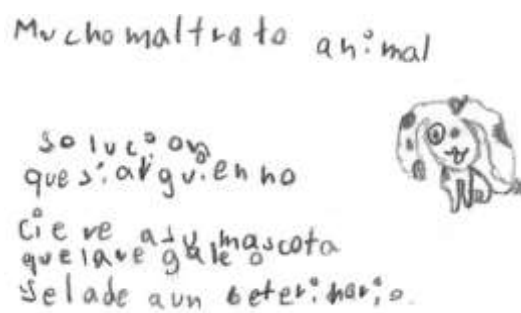 Mucho maltrato animal
solucion
que si alguien no
ciere a su mascota
que la regale o
se la de a un beterinario.